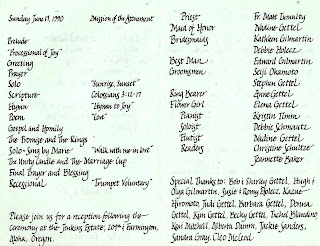 Sunday, June 17, 1990 Mission of the Atonement
Prelude
"Processional of Joy"
Greeting
Prayer
Solo "Sunrise, Sunset"
Scripture Colossians 3:12-17
Hymn "Hymn to Joy"
Poem "Love"
Gospel and Homily
The Promise and The Rings
Solo-Song by Marie "Walk with me in love"
The Unity Candle and The Marriage Cup
Final Prayer and Blessing
Recessional "Trumpet Voluntary"
Please join us for a reception following the
ceremony at the Jenkins Estate, 209th & Farmington,
Aloha, Oregon.
Priest Fr. Matt Tumulty
Maid of Honor Nadine Gettel
Bridesmaids Kathleen Gilmartin
Debbie Holecz
Best Man Edward Gilmartin
Groomsmen Seiji Okamoto
Stephen Gettel
Ring Bearer Gene Gettel
Flower Girl Elena Gettel
Pianist Kristin Timm
Soloist Debbie Schmautz
Flutist Nadine Gettel
Readers Christine Schultze
Jeannette Baker
Special Thanks to: Bob & Shirley Gettel, Hugh &
Olga Gilmartin, Susie & Romy Holecz, Kazue
Hiromoto, Judi Gettel, Barbara Gettel, Donna
Gettel, Kim Gettel, Becky Gettel, Tischa Blanding
Kari Mitchell, Alberta Damm, Jackie Sanders,
Sandra Gray, Cleo McLeod